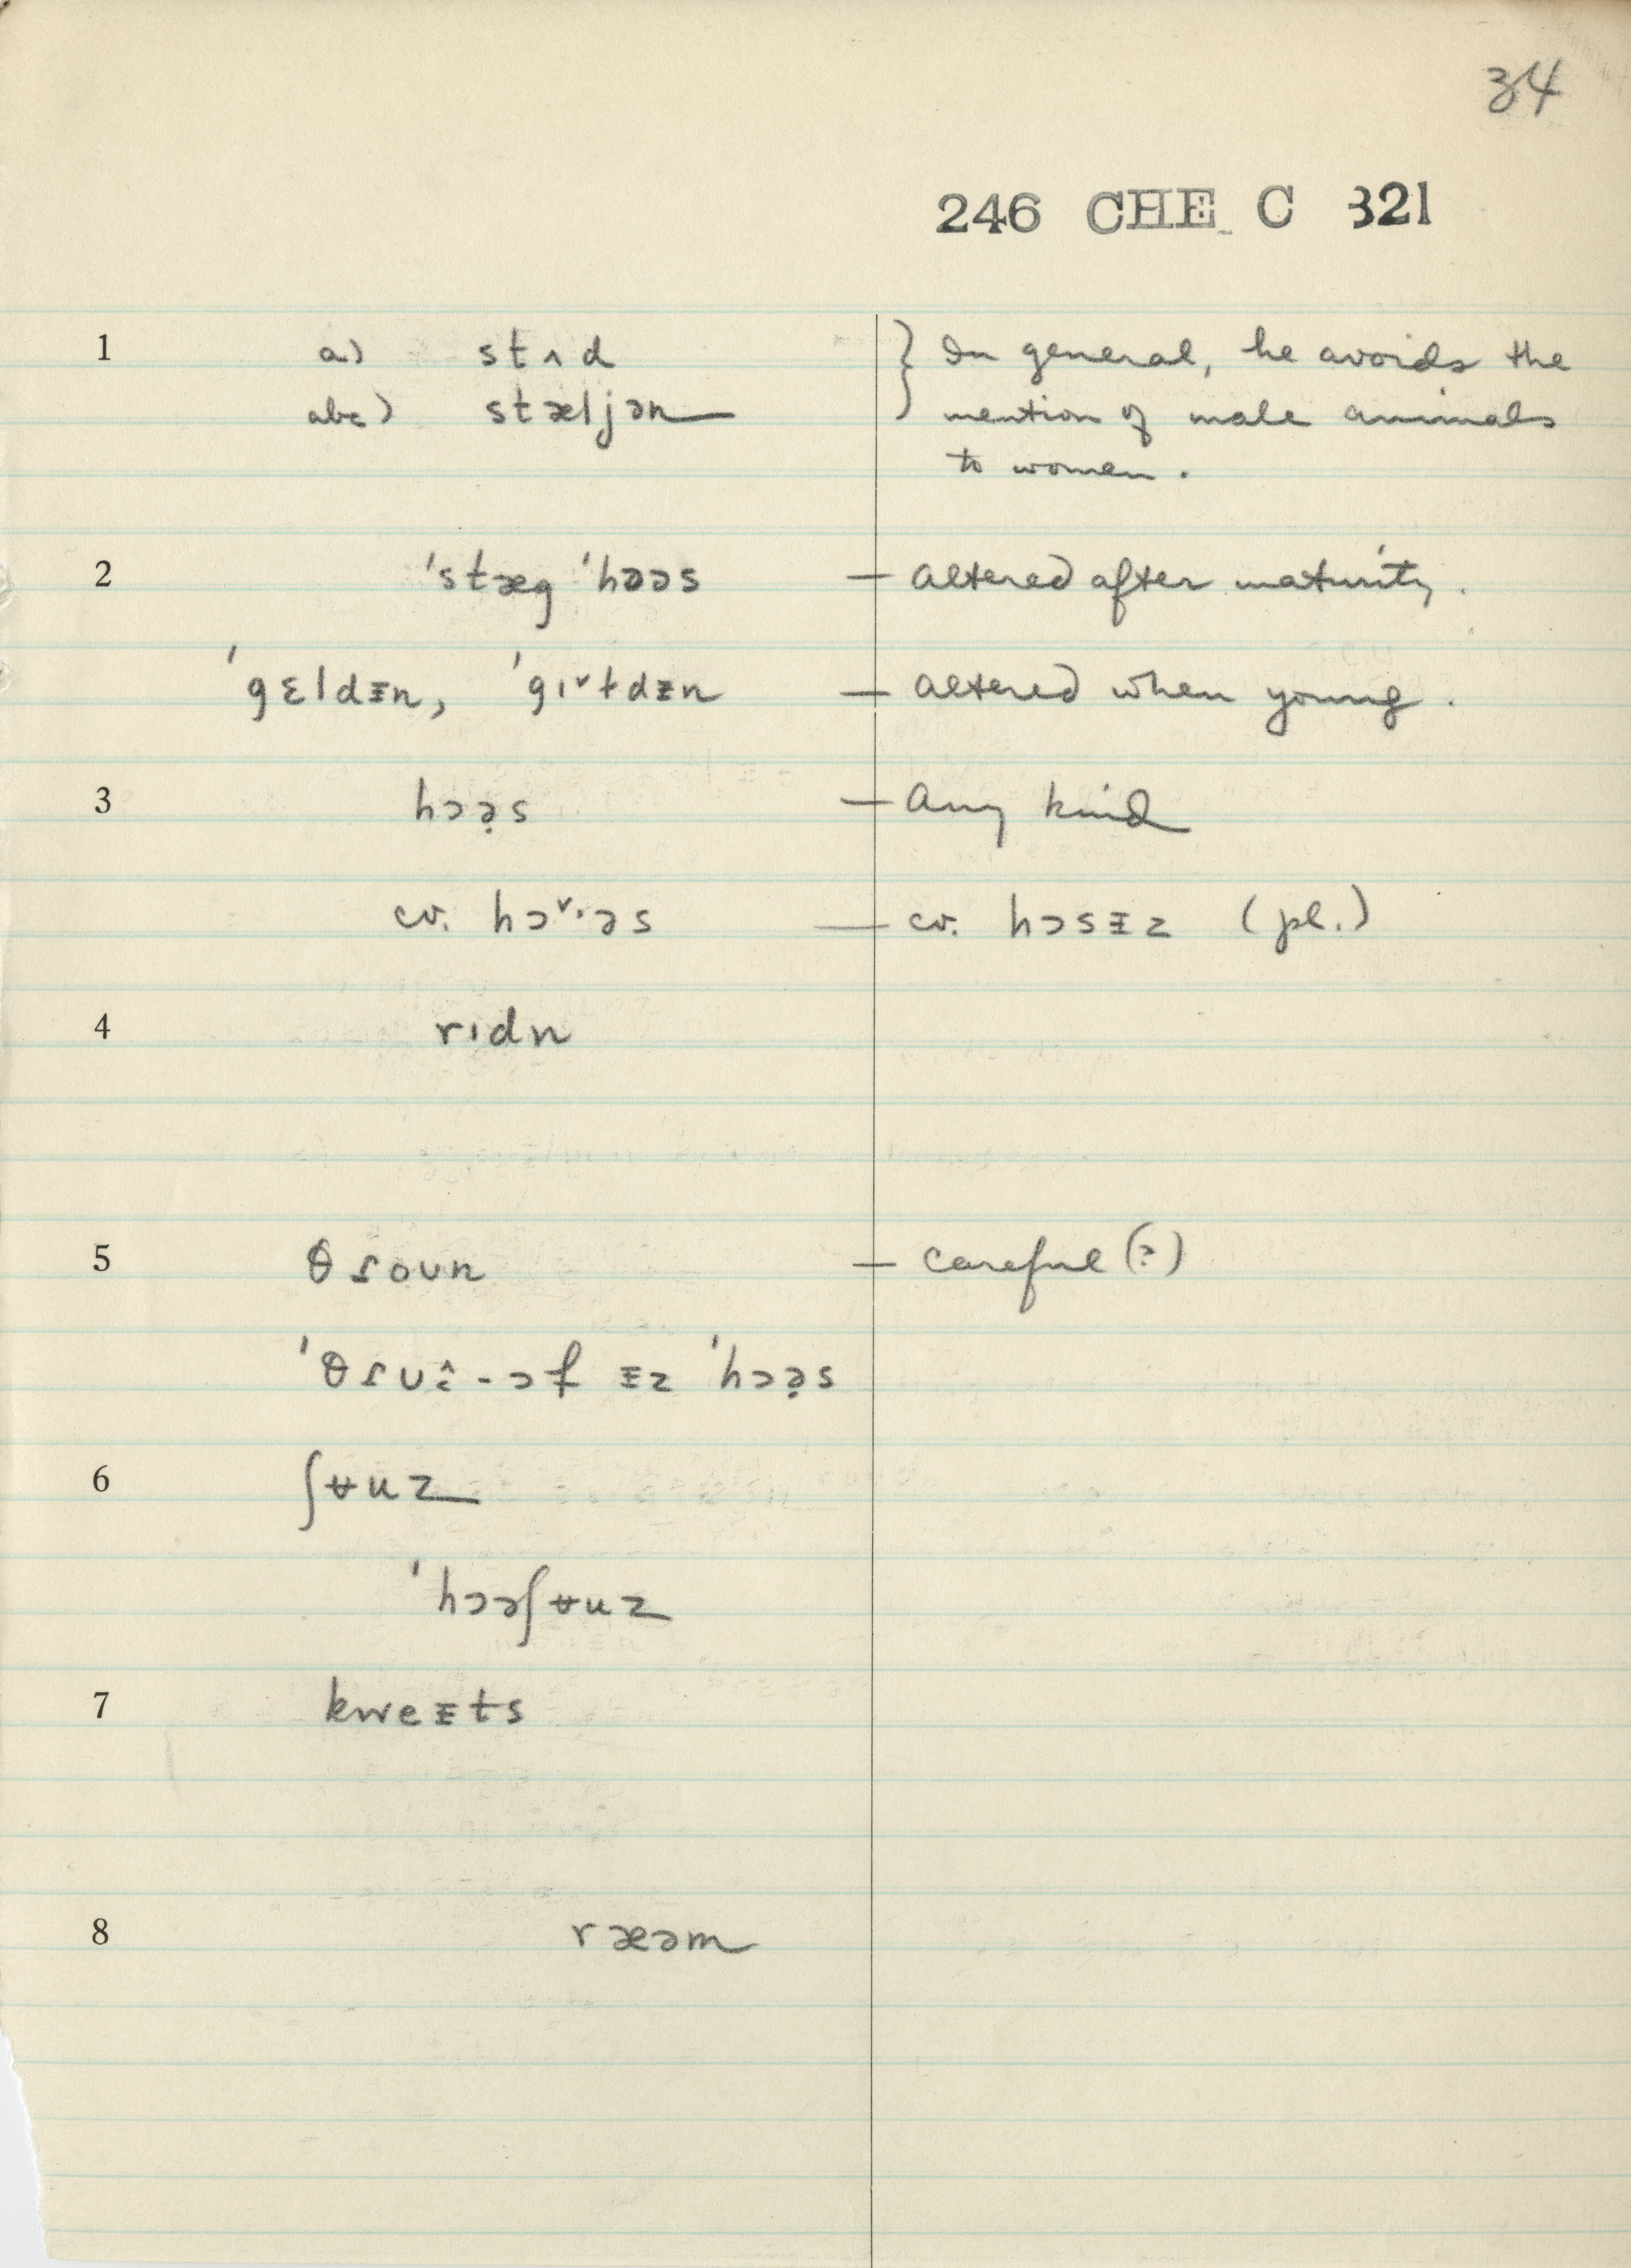 34
246 CHE C 321
1 a) stʌd } In general, he avoids the
abc) stæljən mention of male animals
to women.
2 ˈstæg ˈhɔəs — altered after maturity.
ˈgɛldᵻn, ˈgɪ˅ɫdᵻn — altered when young.
3 hɔə̣s — any kind
cv. hɔ˅·əs — cv. hɔsᵻz (pl.)
4 rɪdn
5 θɾoʊn — careful (?)
ˈθɾʊ -ɔf ᵻz ˈhɔə̣s
6 ʃʉuz
ˈhɔəʃʉuz
7 kweᵻts
8 ræəm